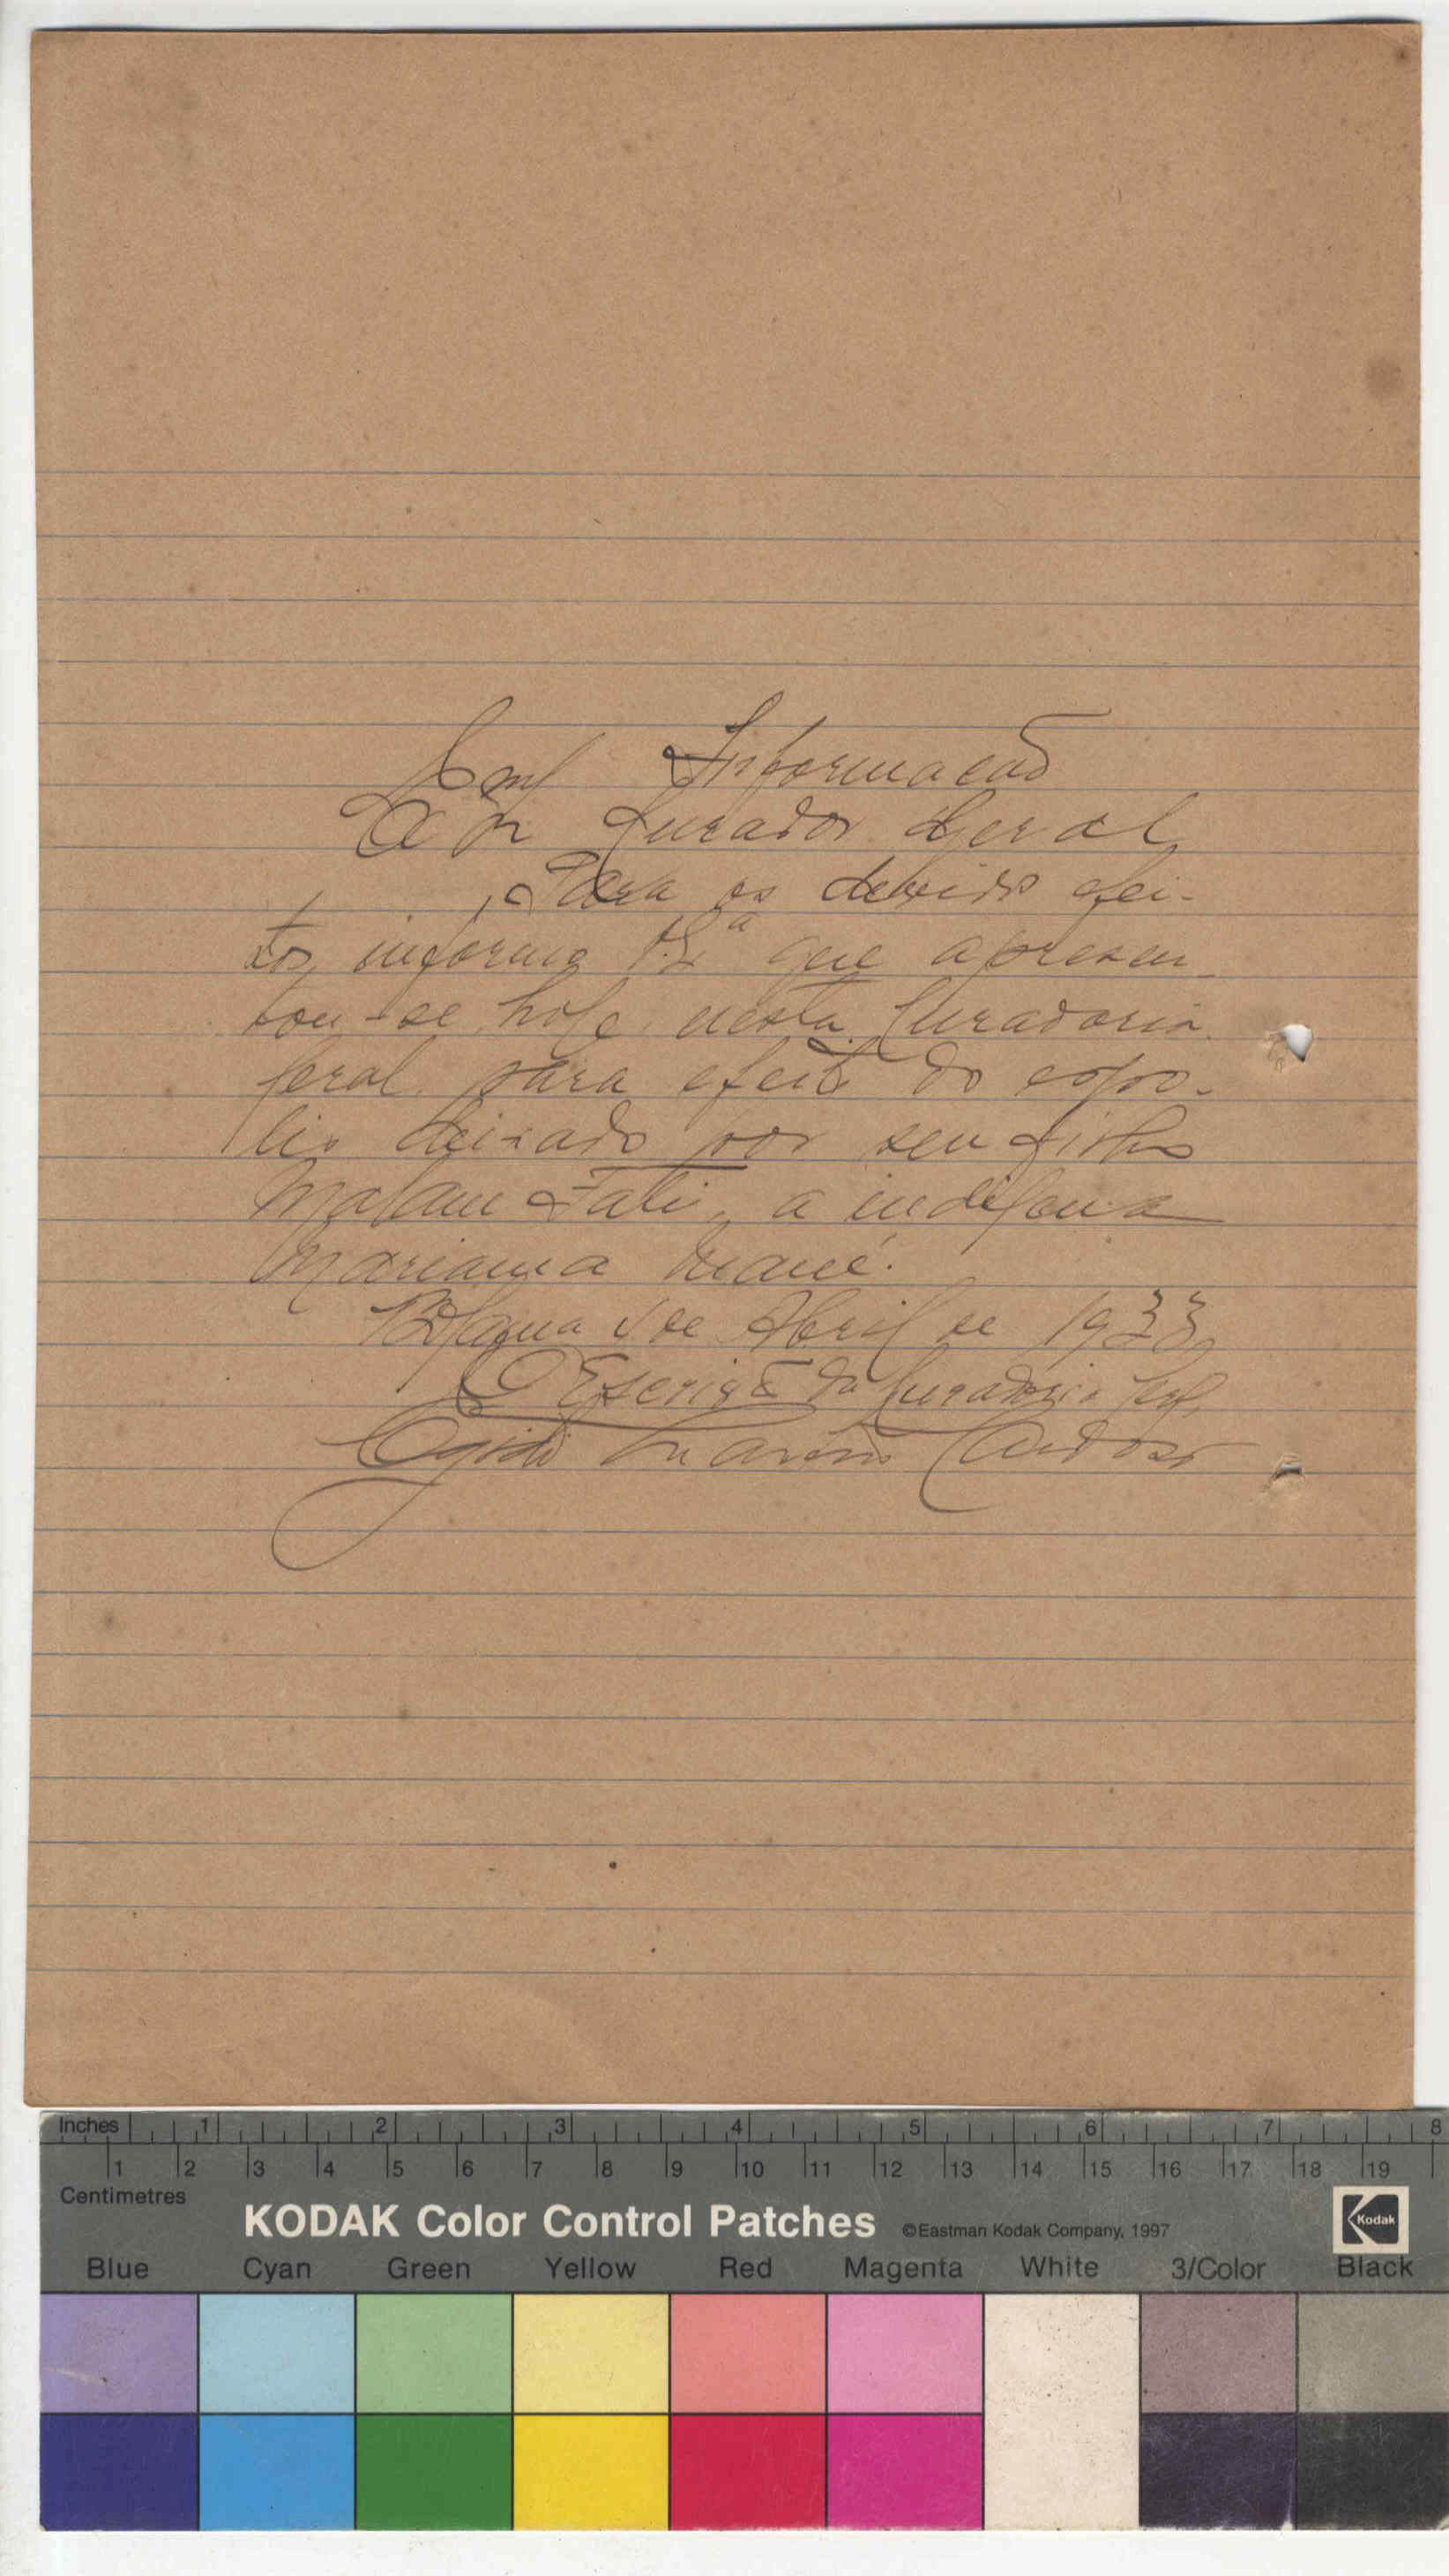 Informacão
Curador Geral
Para os devidos efei-
tos, informo V. Sª que apresen-
tou-se hoje nesta Curadoria
Geral para efeito do espo-
lio deixado por seu filho
Malam Fati, a indígena
Marianna Mané.
Bolama 1 de Abril de 1933
O Escrivão da Curadoria
Cardoso
Inches 1 2 3 4 5 6 7 8
1 2 3 4 5 6 7 8 9 10 11 12 13 14 15 16 17 18 19
Centimetres
KODAK Color Control Patches ©Eastman Kodak Company, 1997 Kodak
Blue Cyan Green Yellow Red Magenta White 3/Color Black